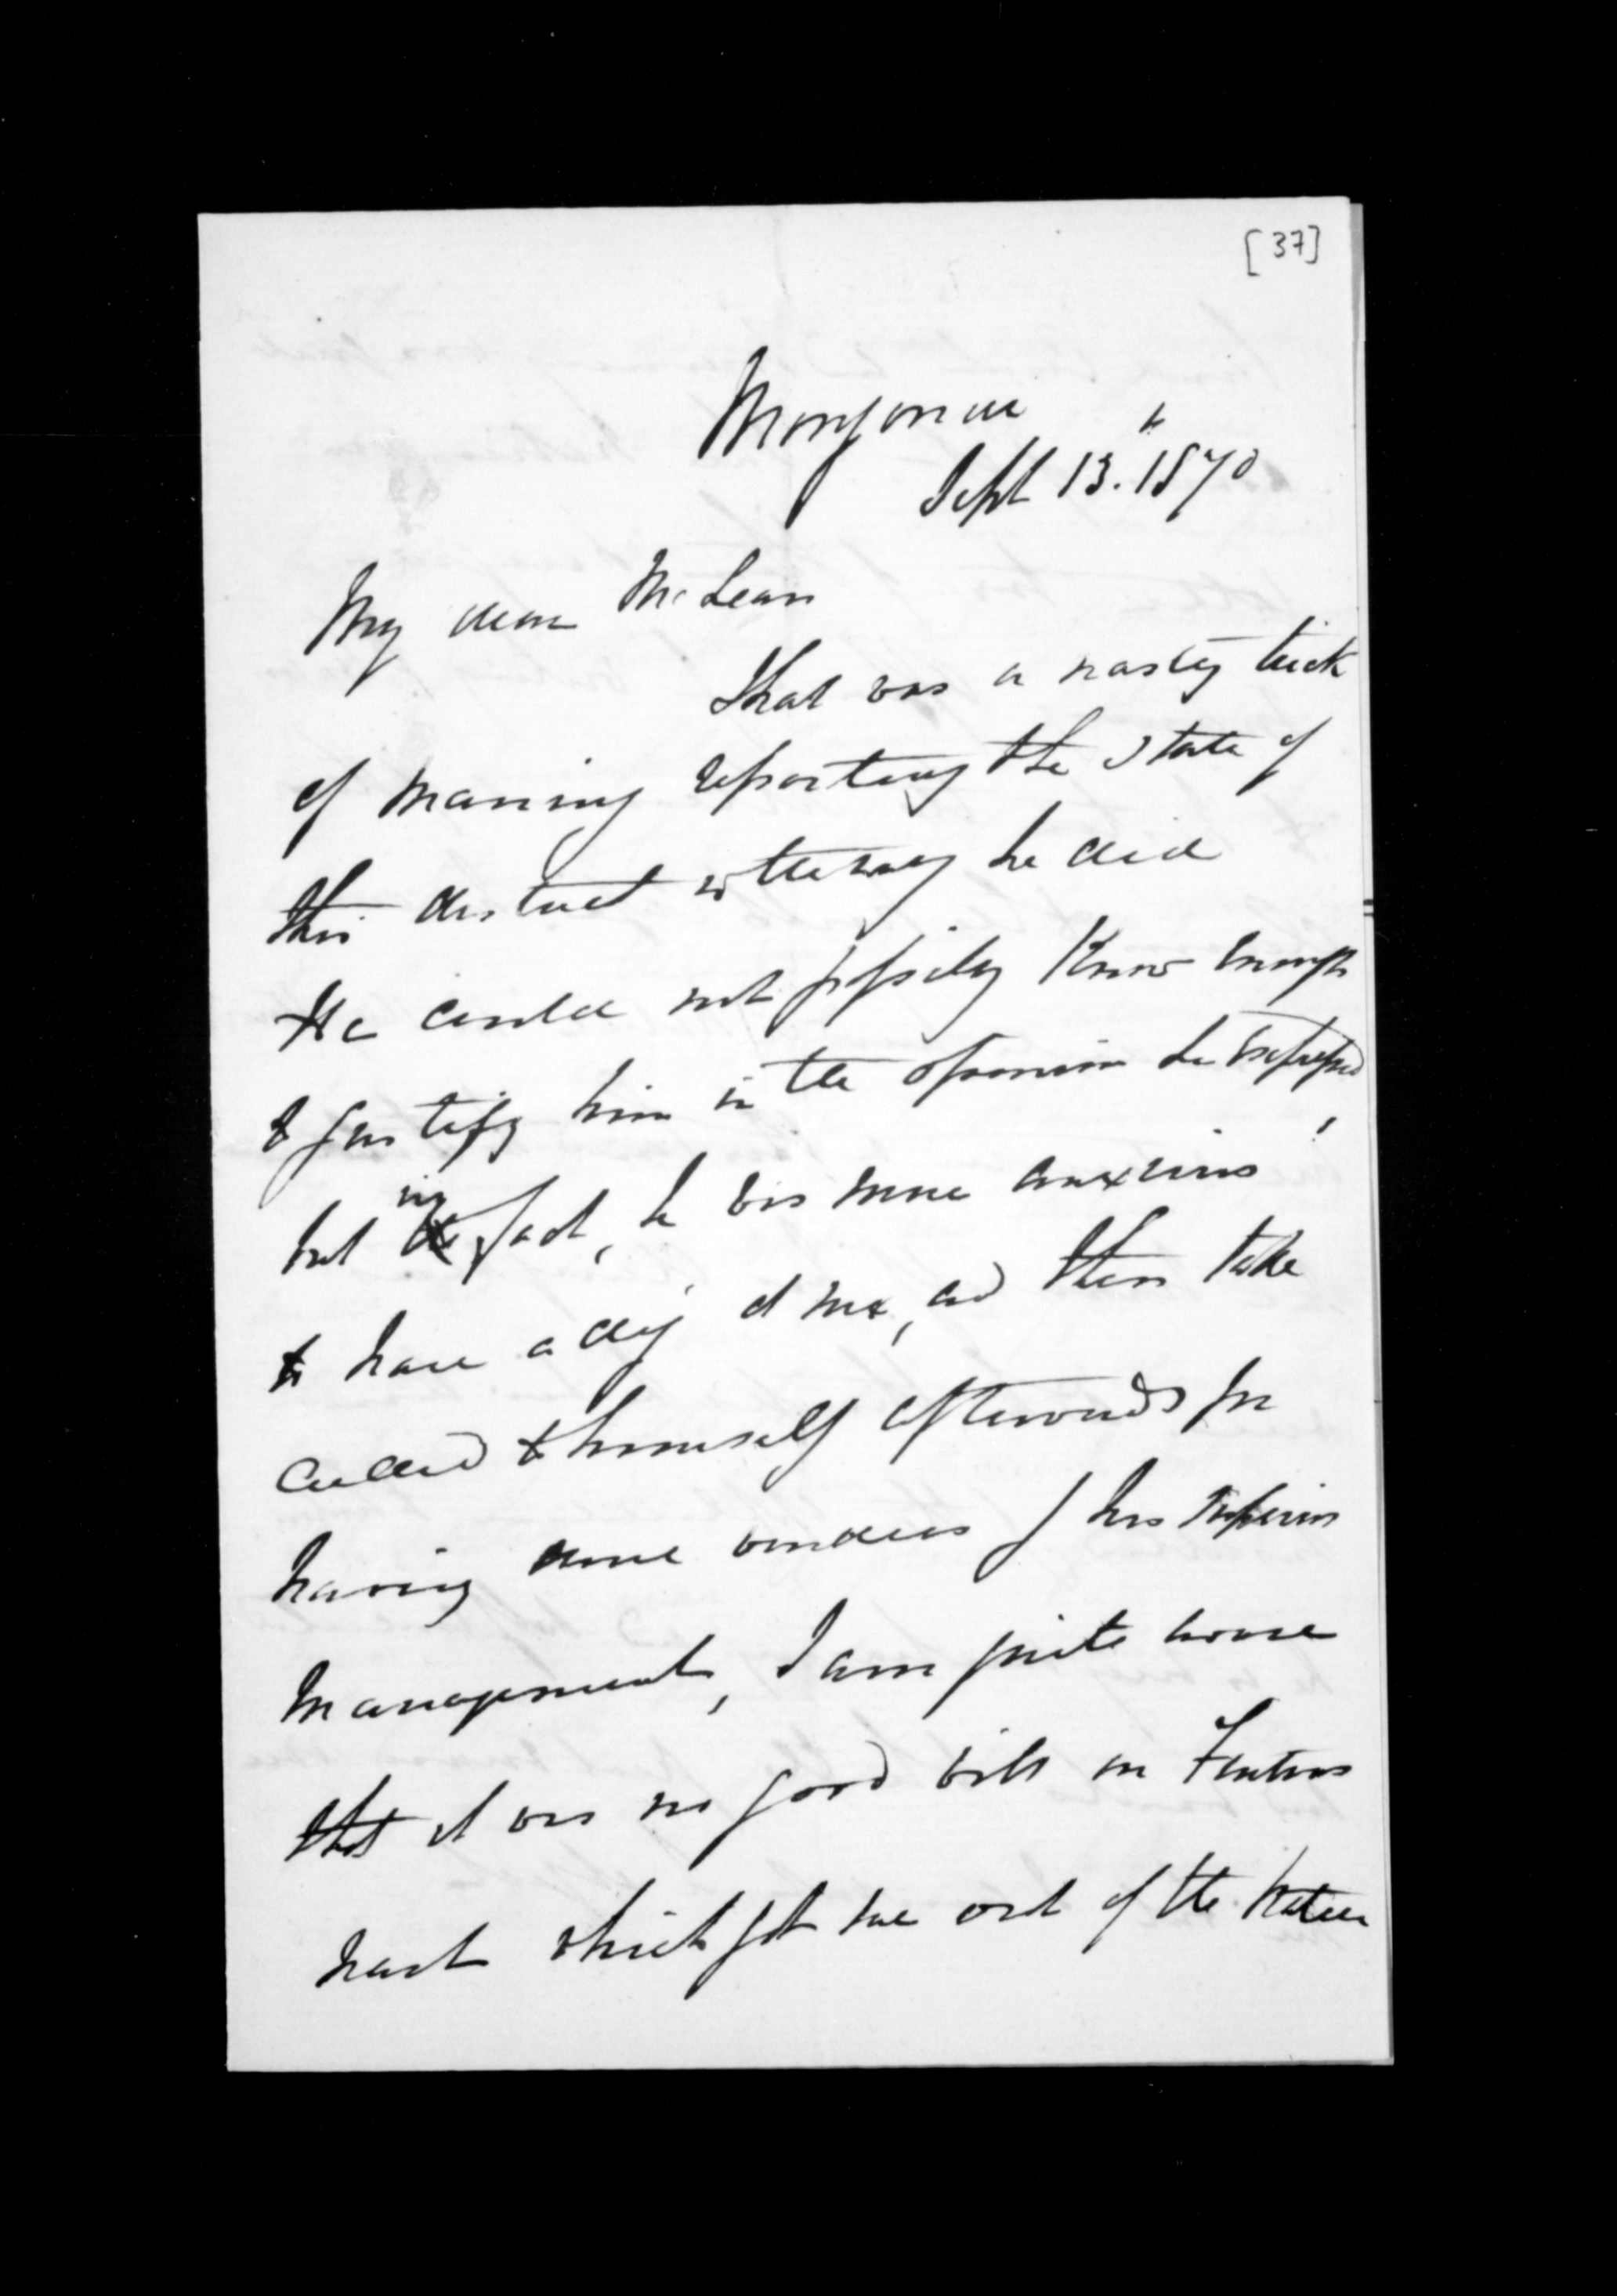 [37]
Mongonui
Sept 13.th 1870
My dear McLean
That was a nasty trick
of Manning reporting the state of
this district in the way he did
He could not possibly know enough
to justify him in the opinion he expressed,
but in fact, he was more anxious
to have a dig at me, and then take
credit to himself afterwards for
having done wonders by his superior
Management, I am quite aware
that it was no good will on Fentons
part which got me out of the Native